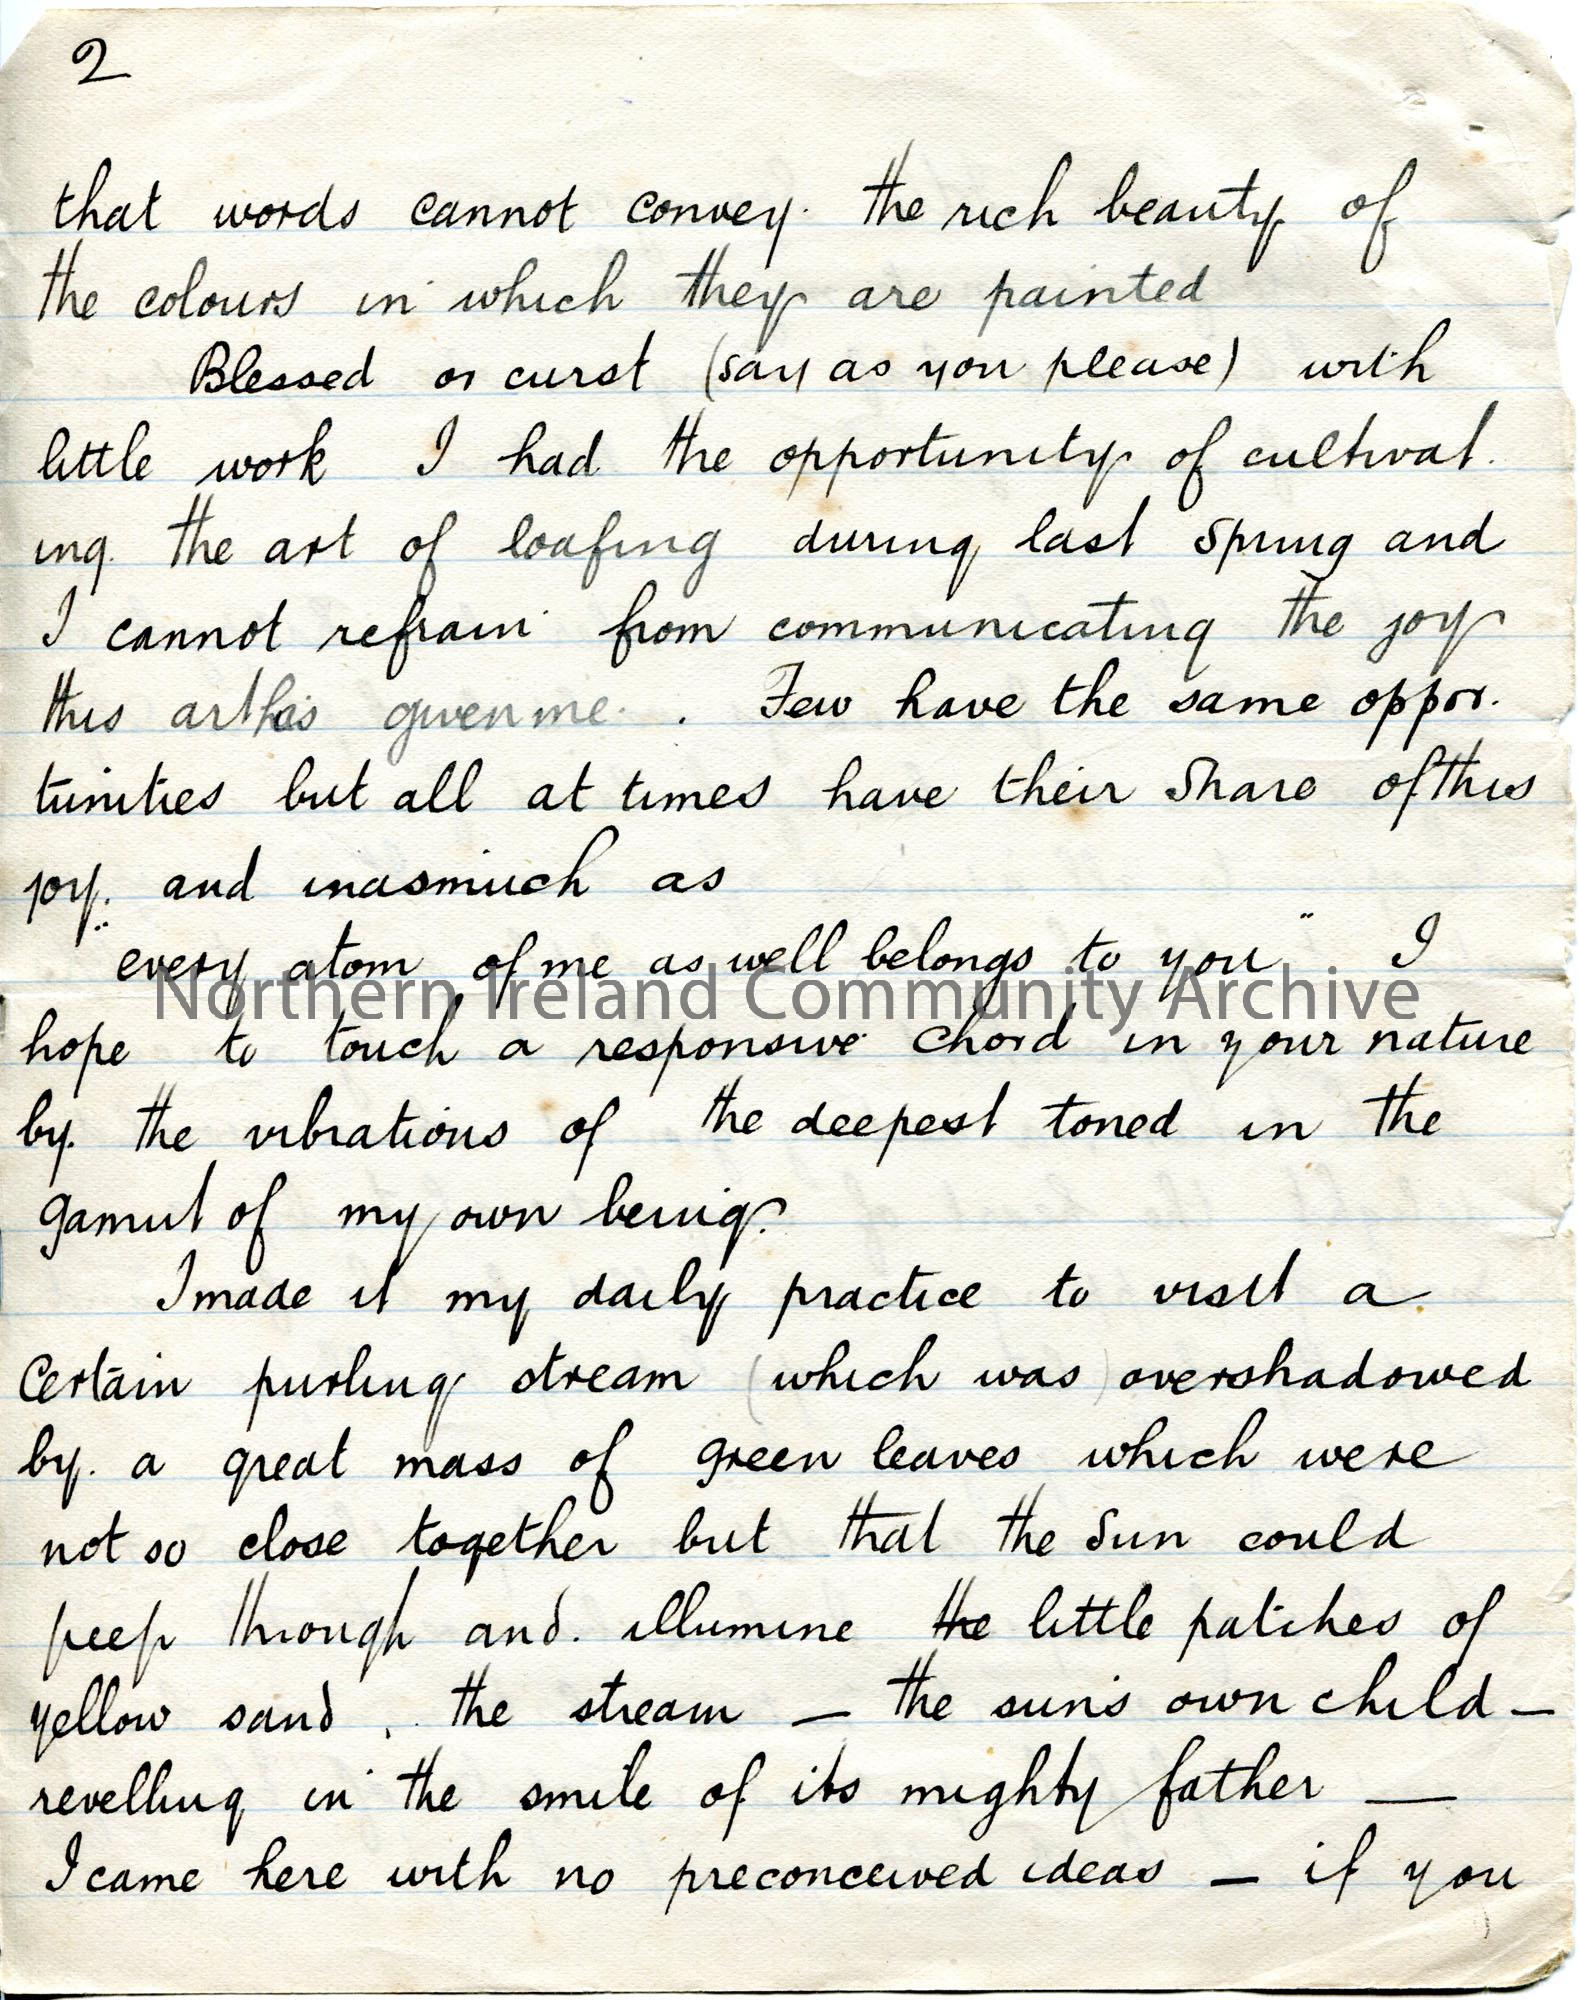 2
that words cannot convey. the rich beauty of
the colours in which they are painted
Blessed or curst (say as you please) with
little work I had the opportunity of cultivat.
ing. the art of loafing during last Spring and
I cannot refrain from communicating the joy
this art has given me. . Few have the same oppor.
tunities but all at times have their Share of this
joy. and inasmuch as
"every atom of me as well belongs to you" I
Northern Ireland Community Archive
hope to touch a responsive chord in your nature
by. the vibrations of the deepest toned in the
gamut of my own being.
I made it my daily practice to visit a
Certain purling stream (which was) overshadowed
by. a great mass of green leaves which were
not so close together but that the Sun could
peep through and. illumine the little patches of
yellow sand, . the stream — the sun's own child —
revelling in the smile of its mighty father —
I came here with no preconceived ideas — if you